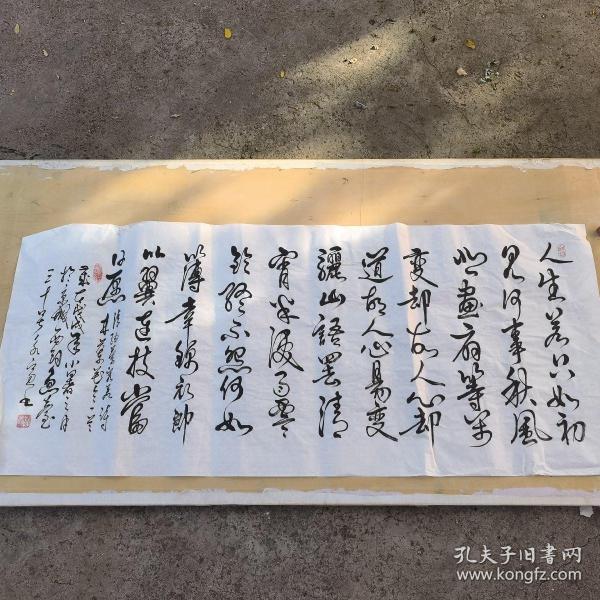 人生若只如初
見何事秋風
悲畫扇等閒
變却故人心却
道故人心易變
驪山語罷清
宵半淚雨零
鈴終不怨何如
薄幸錦衣郎
比翼連枝當
日願
木蘭花令一首
戊戌年小暑三日
孔夫子旧书网
www.kongfz.com